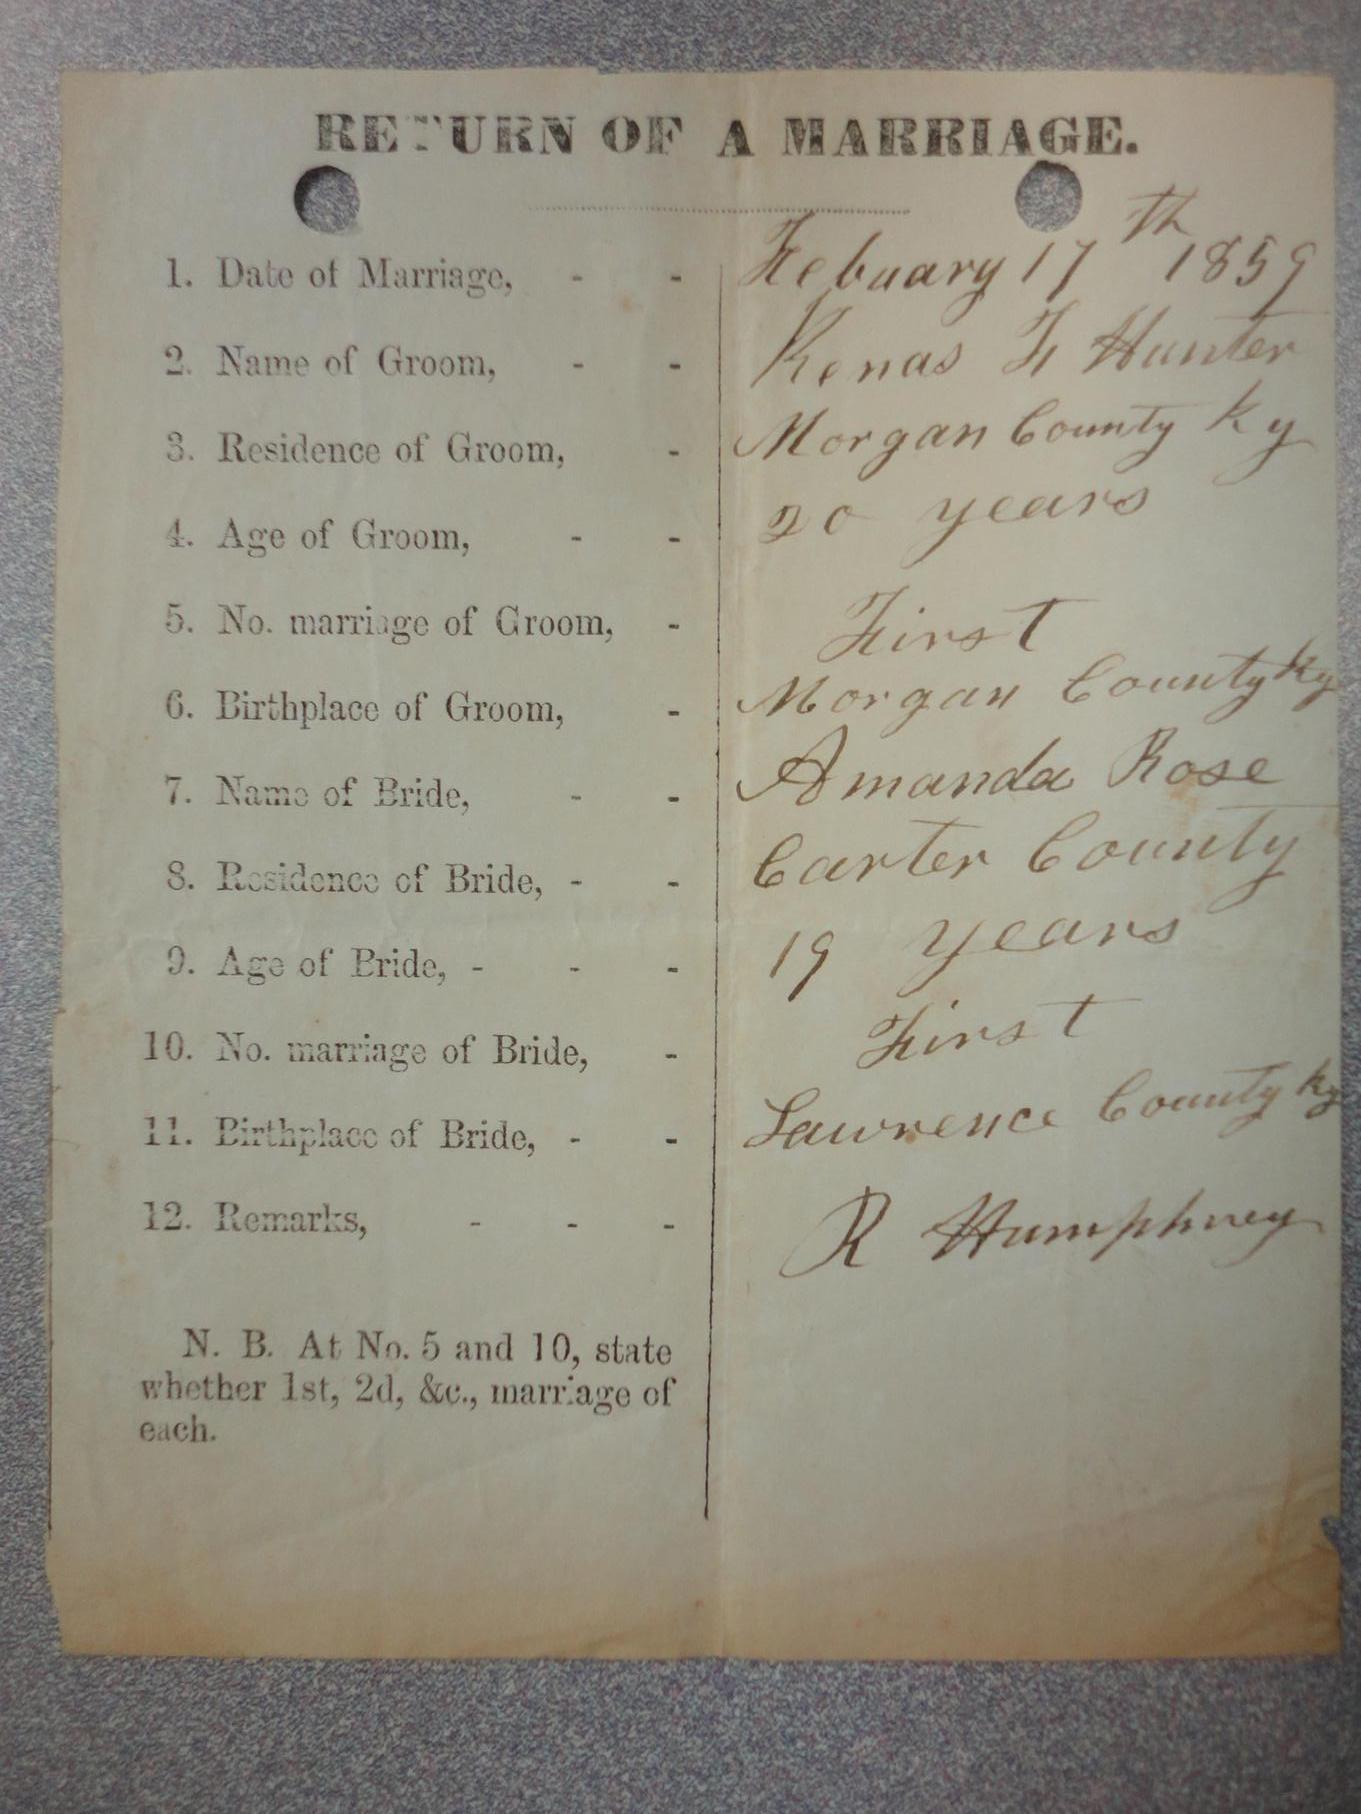 RETURN OF A MARRIAGE.
1. Date of Marriage, - - Febuary 17th 1859
2. Name of Groom, - - Kenas F Hunter
3. Residence of Groom, - Morgan County Ky
4. Age of Groom, - - 20 years
5. No. marriage of Groom, - First
6. Birthplace of Groom, - Morgan County Ky
7. Name of Bride, - - Amanda Rose
8. Residence of Bride, - - Carter County
9. Age of Bride, - - - 19 years
10. No. marriage of Bride, - First
11. Birthplace of Bride, - - Lawrence County Ky
12. Remarks, - - - R Humphrey
N. B. At No. 5 and 10, state
whether 1st, 2d, &c., marriage of
each.